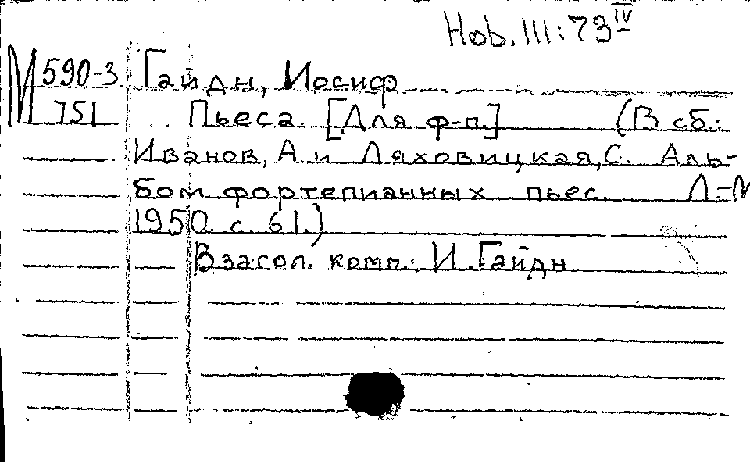 Hob. III:73 IV
М 590-3 Гайдн, Иосиф
751 Пьеса. [Для ф-п.] (В сб.:
Иванов, А. и Ляховицкая, С. Аль-
бом фортепианных пьес Л-М
1950. с. 61.)
В загол. комп.: И. Гайдн